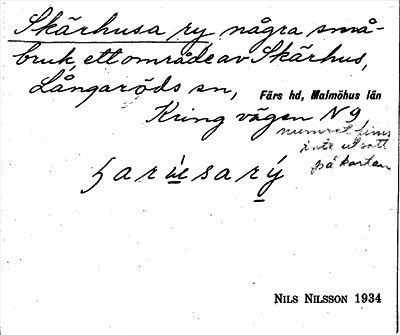 Skärhusa ry några små-
bruk, ett område av Skärhus,
Långaröds sn, Färs hd, Malmöhus län
Kring vägen N 9
numret finns
inte utsatt
på kartan
NILS NILSSON 1934